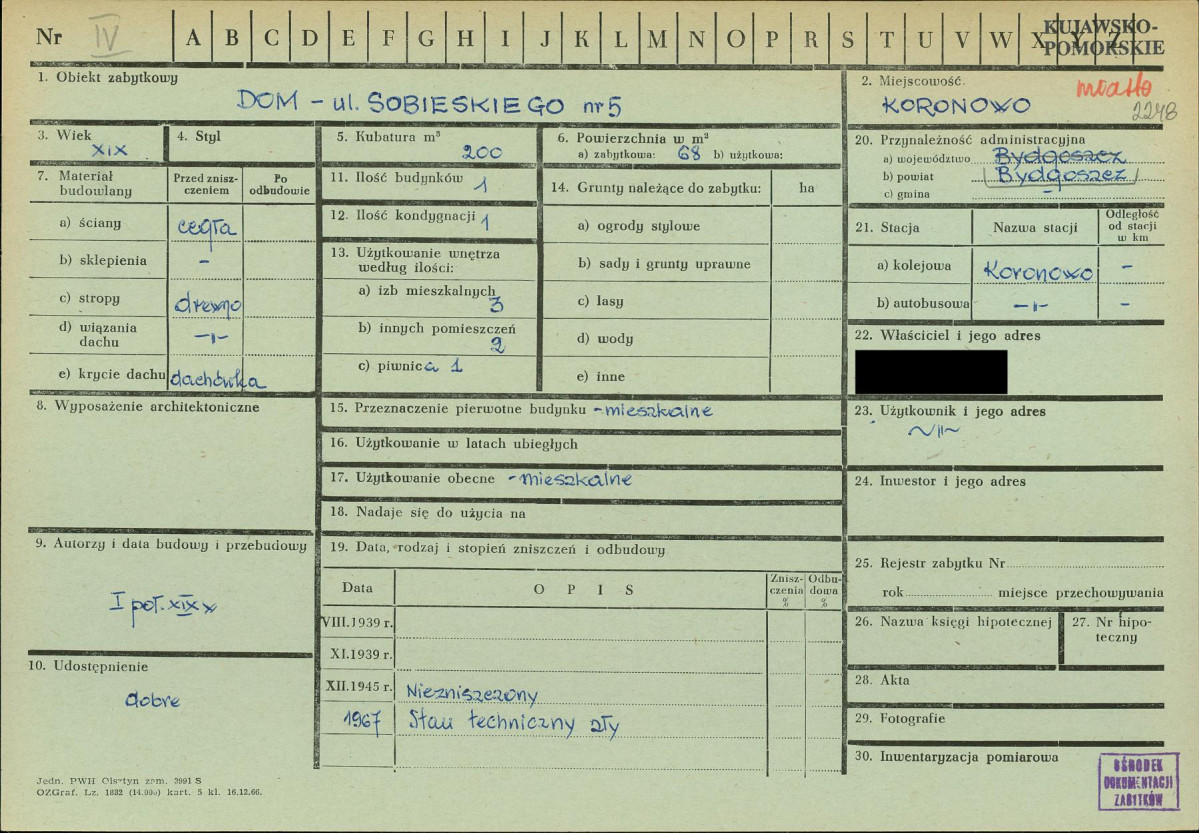 Nr IV A B C D E F G H I J K L M N O P R S T U V W X Y Z
KUJAWSKO-
POMORSKIE
1. Obiekt zabytkowy
DOM - ul. SOBIESKIEGO nr 5
2. Miejscowość
miasto
KORONOWO
2248
3. Wiek
XIX
4. Styl
5. Kubatura m³
200
6. Powierzchnia w m²
a) zabytkowa: 68 b) użytkowa:
7. Materiał
budowlany
Przed znisz-
czeniem
Po
odbudowie
a) ściany cegła
b) sklepienia -
c) stropy drewno
d) wiązania
dachu -"-
e) krycie dachu dachówka
8. Wyposażenie architektoniczne
9. Autorzy i data budowy i przebudowy
I poł. XIX w
10. Udostępnienie
dobre
Jedn. PWH Olsztyn zam. 3991 S
OZGraf. Lz. 1882 (14.000) kart. 5 kl. 16.12.66.
11. Ilość budynków 1
12. Ilość kondygnacji 1
13. Użytkowanie wnętrza
według ilości:
a) izb mieszkalnych
3
b) innych pomieszczeń
2
c) piwnica 1
14. Grunty należące do zabytku: ha
a) ogrody stylowe
b) sady i grunty uprawne
c) lasy
d) wody
e) inne
15. Przeznaczenie pierwotne budynku - mieszkalne
16. Użytkowanie w latach ubiegłych
17. Użytkowanie obecne - mieszkalne
18. Nadaje się do użycia na
19. Data, rodzaj i stopień zniszczeń i odbudowy
Data O P I S
Znisz-
czenia
%
Odbu-
dowa
%
VIII.1939 r.
XI.1939 r.
XII.1945 r. Niezniszczony
1967 Stan techniczny zły
20. Przynależność administracyjna
a) województwo Bydgoszcz
b) powiat Bydgoszcz
c) gmina -
21. Stacja Nazwa stacji
Odległość
od stacji
w km
a) kolejowa Koronowo -
b) autobusowa -"- -
22. Właściciel i jego adres
23. Użytkownik i jego adres
-"-
24. Inwestor i jego adres
25. Rejestr zabytku Nr
rok miejsce przechowywania
26. Nazwa księgi hipotecznej
27. Nr hipo-
teczny
28. Akta
29. Fotografie
30. Inwentaryzacja pomiarowa
OŚRODEK
DOKUMENTACJI
ZABYTKÓW